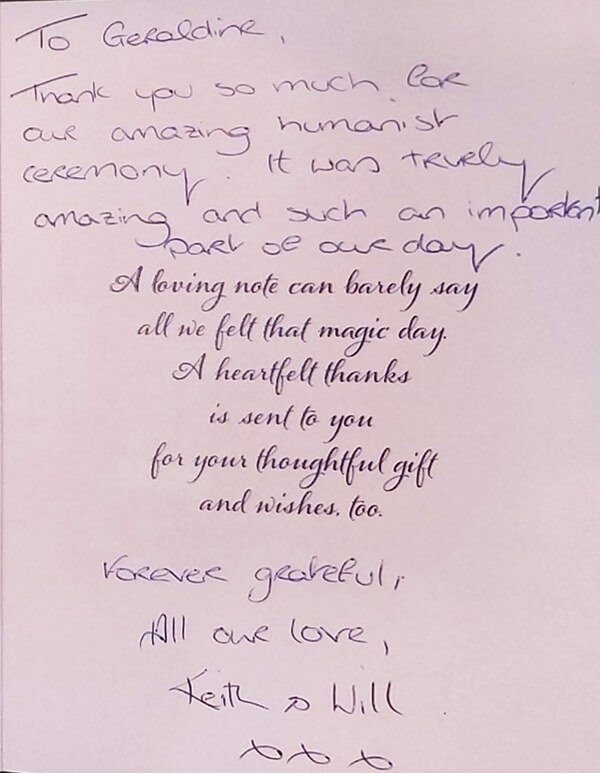 To Geraldine,
Thank you so much for
our amazing humanist
ceremony. It was truely
amazing and such an important
part of our day.
A loving note can barely say
all we felt that magic day.
A heartfelt thanks
is sent to you
for your thoughtful gift
and wishes, too.
Forever grateful,
All our love,
Keith & Will
x x x